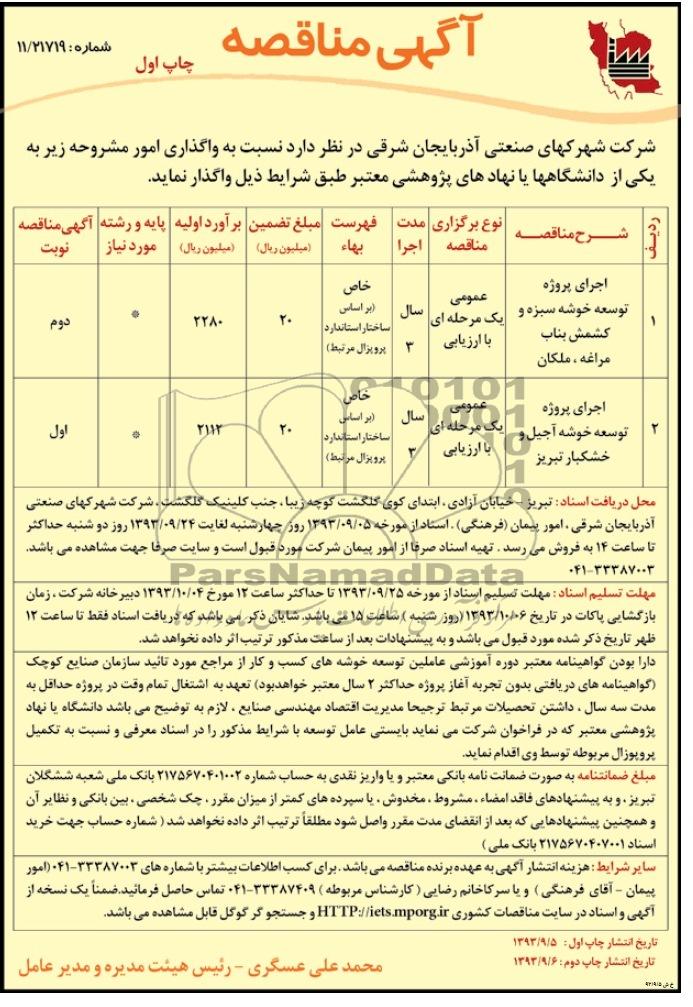 آگهی مناقصه
شماره : ۱۱/۲۱۷۱۹
چاپ اول
شرکت شهرکهای صنعتی آذربایجان شرقی در نظر دارد نسبت به واگذاری امور مشروحه زیر به
یکی از دانشگاهها یا نهاد های پژوهشی معتبر طبق شرایط ذیل واگذار نماید.
ردیف شـــرح مناقصــه نوع برگزاری مناقصه مدت اجرا فهرست بهاء مبلغ تضمین (میلیون ریال) برآورد اولیه (میلیون ریال) پایه و رشته مورد نیاز آگهی مناقصه نوبت
۱ اجرای پروژه توسعه خوشه سبزه و کشمش بناب مراغه ، ملکان عمومی یک مرحله ای با ارزیابی سال ۳ خاص (بر اساس ساختار استاندارد پروپزال مرتبط) ۲۰ ۲۲۸۰ * دوم
۲ اجرای پروژه توسعه خوشه آجیل و خشکبار تبریز عمومی یک مرحله ای با ارزیابی سال ۳ خاص (بر اساس ساختار استاندارد پروپزال مرتبط) ۲۰ ۲۱۱۲ * اول
محل دریافت اسناد : تبریز – خیابان آزادی ، ابتدای کوی گلگشت کوچه زیبا ، جنب کلینیک گلگشت ، شرکت شهرکهای صنعتی
آذربایجان شرقی ، امور پیمان (فرهنگی) . اسناد از مورخه ۱۳۹۳/۰۹/۰۵ روز چهارشنبه لغایت ۱۳۹۳/۰۹/۲۴ روز دو شنبه حداکثر
تا ساعت ۱۴ به فروش می رسد . تهیه اسناد صرفا از امور پیمان شرکت مورد قبول است و سایت صرفا جهت مشاهده می باشد.
۰۴۱-۳۳۳۸۷۰۰۳
مهلت تسلیم اسناد : مهلت تسلیم اسناد از مورخه ۱۳۹۳/۰۹/۲۵ تا حداکثر ساعت ۱۲ مورخ ۱۳۹۳/۱۰/۰۴ دبیرخانه شرکت ، زمان
بازگشایی پاکات در تاریخ ۱۳۹۳/۱۰/۰۶ (روز شنبه ) ساعت ۱۵ می باشد. شایان ذکر می باشد که دریافت اسناد فقط تا ساعت ۱۲
ظهر تاریخ ذکر شده مورد قبول می باشد و به پیشنهادات بعد از ساعت مذکور ترتیب اثر داده نخواهد شد.
دارا بودن گواهینامه معتبر دوره آموزشی عاملین توسعه خوشه های کسب و کار از مراجع مورد تائید سازمان صنایع کوچک
(گواهینامه های دریافتی بدون تجربه آغاز پروژه حداکثر ۲ سال معتبر خواهدبود) تعهد به اشتغال تمام وقت در پروژه حداقل به
مدت سه سال ، داشتن تحصیلات مرتبط ترجیحا مدیریت اقتصاد مهندسی صنایع ، لازم به توضیح می باشد دانشگاه یا نهاد
پژوهشی معتبر که در فراخوان شرکت می نماید بایستی عامل توسعه با شرایط مذکور را در اسناد معرفی و نسبت به تکمیل
پروپوزال مربوطه توسط وی اقدام نماید.
مبلغ ضمانتنامه به صورت ضمانت نامه بانکی معتبر و یا واریز نقدی به حساب شماره ۲۱۷۵۶۷۰۴۰۱۰۰۲ بانک ملی شعبه ششگلان
تبریز ، و به پیشنهادهای فاقد امضاء ، مشروط ، مخدوش ، یا سپرده های کمتر از میزان مقرر ، چک شخصی ، بین بانکی و نظایر آن
و همچنین پیشنهادهایی که بعد از انقضای مدت مقرر واصل شود مطلقاً ترتیب اثر داده نخواهد شد ( شماره حساب جهت خرید
اسناد ۲۱۷۵۶۷۰۴۰۷۰۰۱ بانک ملی )
سایر شرایط : هزینه انتشار آگهی به عهده برنده مناقصه می باشد . برای کسب اطلاعات بیشتر با شماره های ۳۳۳۸۷۰۰۳-۰۴۱ (امور
پیمان - آقای فرهنگی ) و یا سرکاخانم رضایی ( کارشناس مربوطه ) ۳۳۳۸۷۴۰۹-۰۴۱ تماس حاصل فرمائید.ضمناً یک نسخه از
آگهی و اسناد در سایت مناقصات کشوری HTTP://iets.mporg.ir و جستجو گر گوگل قابل مشاهده می باشد.
تاریخ انتشار چاپ اول : ۱۳۹۳/۹/۵
تاریخ انتشار چاپ دوم : ۱۳۹۳/۹/۶
محمد علی عسگری - رئیس هیئت مدیره و مدیر عامل
ParsNamadData